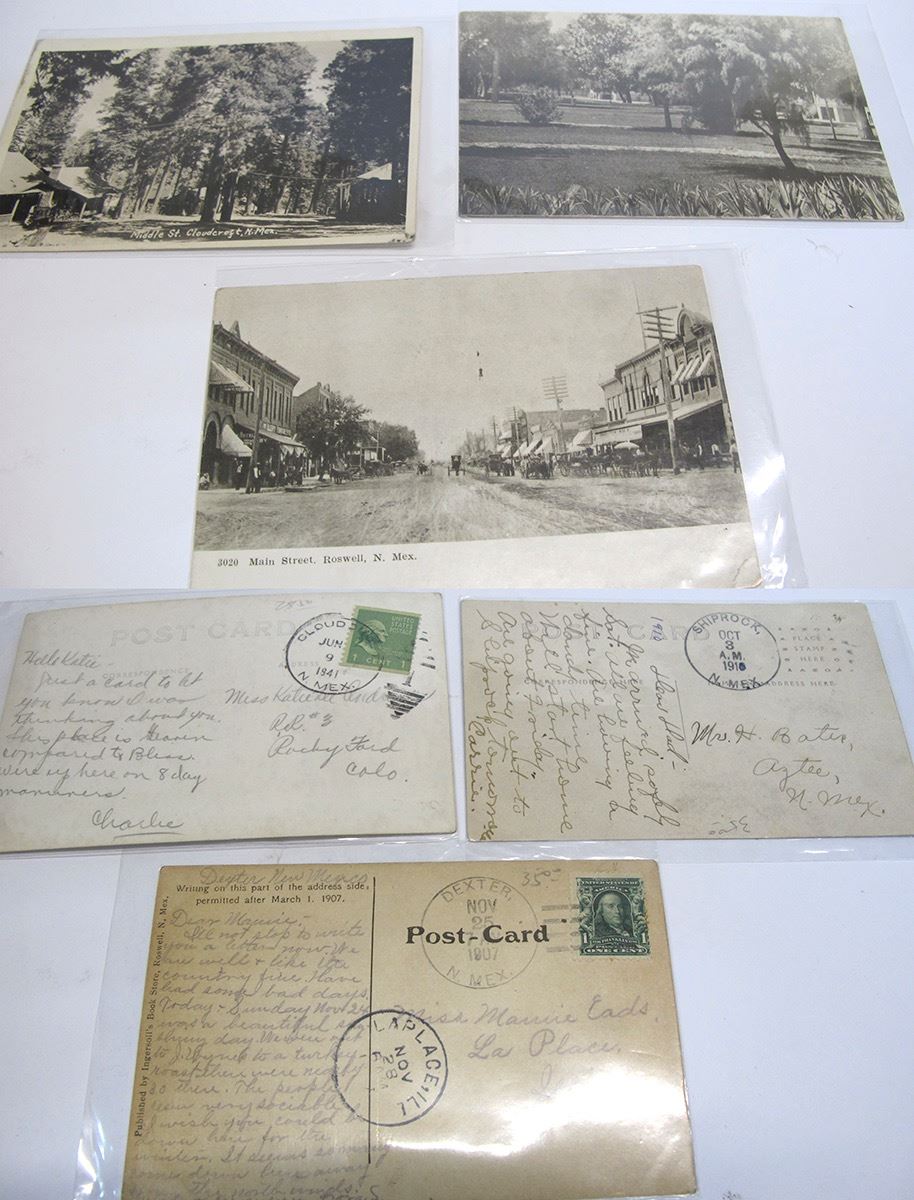 Middle St. Cloudcroft, N. Mex.
3020 Main Street, Roswell, N. Mex.
POST CARD
CORRESPONDENCE
Hello Katie -
Just a card to let
you know I was
thinking about you.
This place is Heaven
compared to Bliss.
We're up here on 8 day
manuvers.
Charlie
CLOUD
JUN
9
1941
N. MEX.
UNITED STATES POSTAGE
1 CENT 1
Miss Katie
Rd. #3
Rocky Ford
Colo.
CARD
1910
Dear Dad -
Arrived safely
but am feeling
fine. Am having a
dandy time
Will start home
about Friday
are going out to
Shiprock tomorrow
Carrie.
SHIPROCK,
OCT
3
A.M.
1910
N. MEX.
PLACE
STAMP
HERE
ADDRESS HERE.
Mr. H. Bates,
Aztec,
N. Mex.
Dexter New Mexico
Writing on this part of the address side,
permitted after March 1. 1907.
Published by Ingersoll's Book Store, Roswell, N. Mex.
Dear Mamie -
I'll not stop to write
you a letter now. We
are well & like the
country fine. Have
had some bad days.
Today - Sunday Nov 24
was a beautiful
day. We were out
to J. Bynes to a turkey-
roast there were nearly
50 there. The people
seem very sociable
I wish you could be
down here for the
winter. It seems so many
come down here away
winds.
35
DEXTER,
NOV
25
1907
N. MEX.
Post-Card
UNITED STATES OF AMERICA
1 1
ONE CENT
Miss Mamie Eads.
La Place.
LAPLACE, ILL
NOV
28